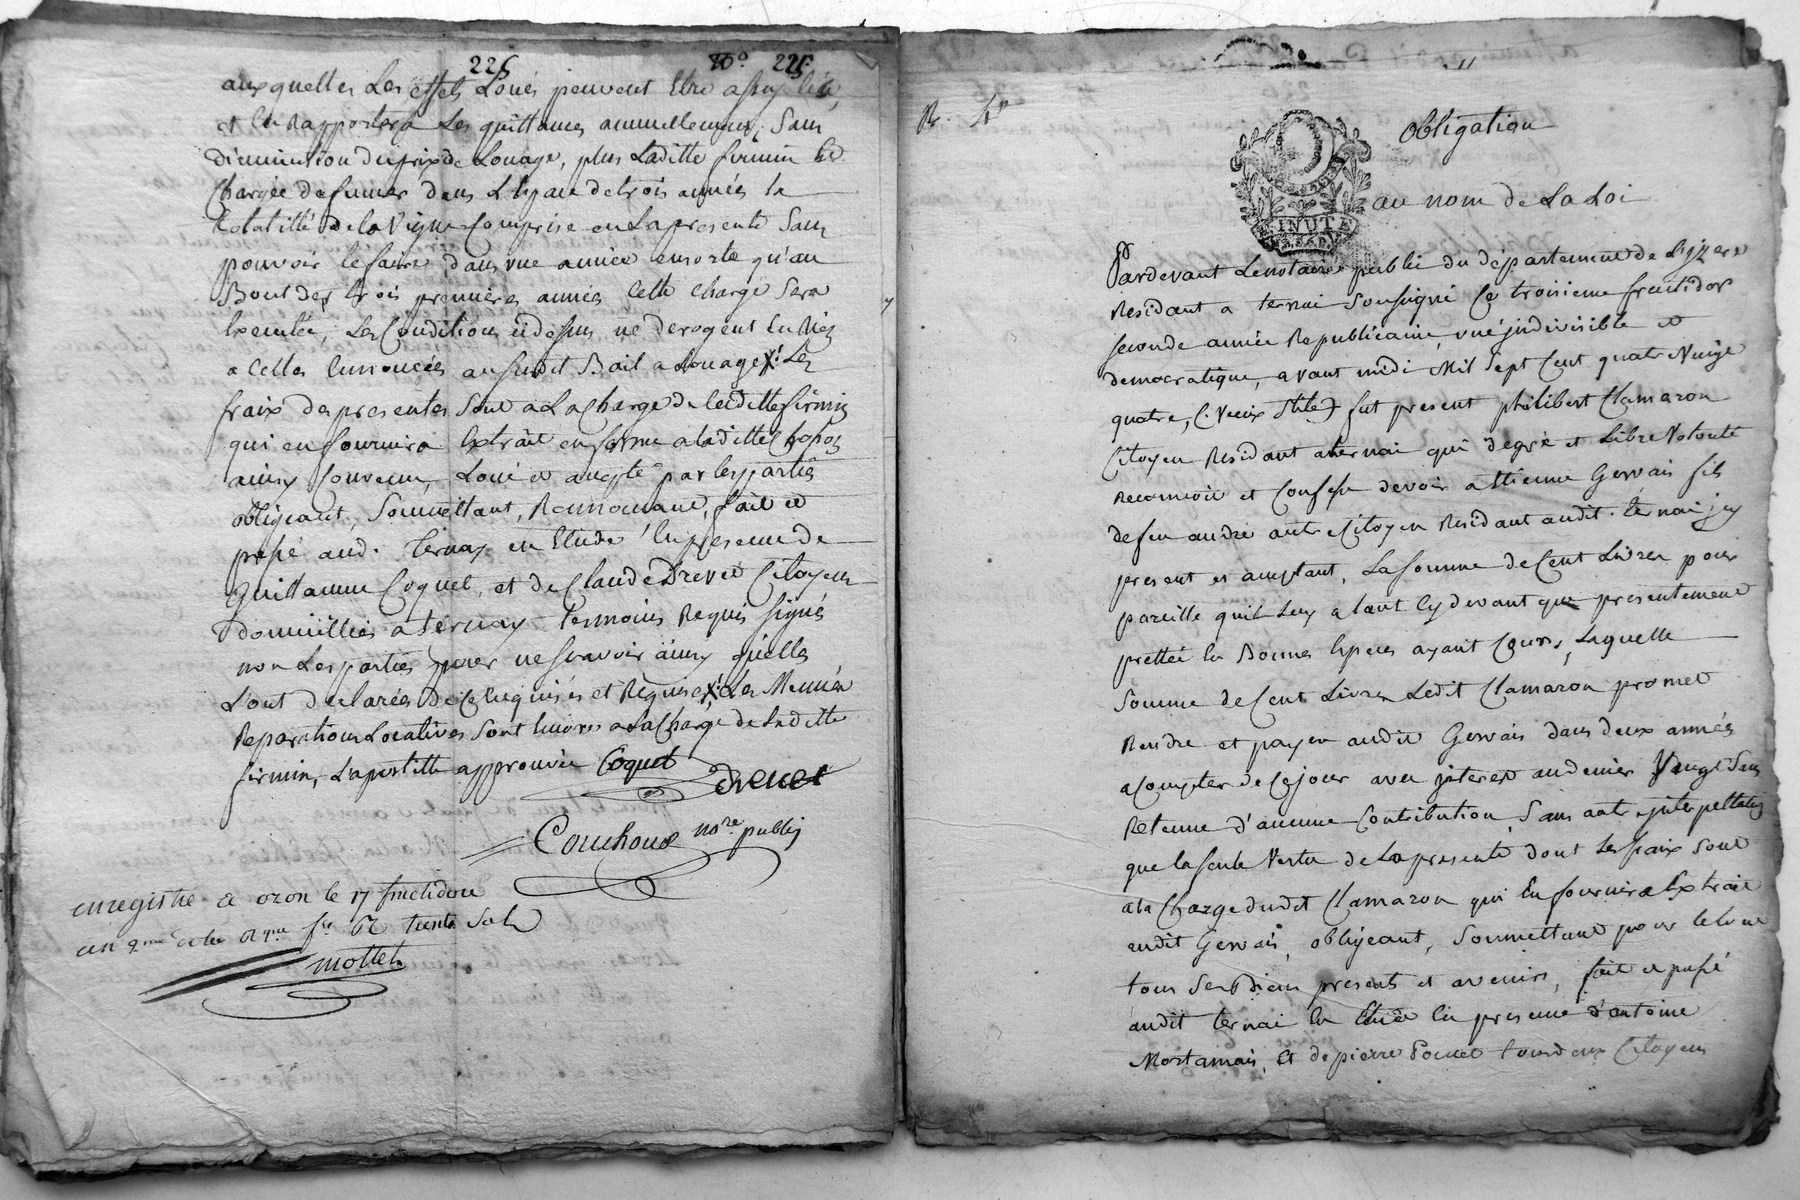 225 No 225
auxquelles Les effets Loués peuvent Etre
et En Rapportera Les quittances annuellement, Sans
diminution du prix de Louage, plus Laditte firmin Est
Chargée de fumer dans L'Espace de trois années la
totalitté de la Vigne Comprise en La presente Sans
pouvoir le faire dans une année ensorte qu'au
Bout des trois premieres années Cette Charge Sera
Executée, Les Conditions cidessus ne derogent En Rien
a Celles Ennoncées au Susdit Bail a Louage X. Les
fraix des presentes Sont a La Charge de laditte firmin
qui en fournira Extrait en forme a laditte
ainsy Convenu, Loué et accepté par les parties
obligeant, Soumettant, Renoncant, fait et
passé aud. Ternay en Etude En presence de
Guillaume Coquet, et de Claude Drevet Citoyens
domiciliés a ternay temoins Requis signés
non Les parties pour ne scavoir ainsy qu'elles
L'ont declarées de Ce Enquises et Requises X. Les Menues
Reparations Locatives Sont Encores a La Charge de Laditte
firmin, L'apostille approuvée Coquet
Drevet
Couchoud nore public
enregistré a ozon le 17 fructidor
trente Sols
mottet
obligation
MINUTE
au nom de La Loi
Pardevant Le notaire public du département de L'izere
Residant a ternai Soussigné Ce troisieme fructidor
seconde année Republicaine, une, indivisible et
democratique, avant midi Mil Sept Cent quatre Vingt
quatre, (Vieux Stile) fut present philibert Clamaron
Citoyen Residant a ternai qui de gré et Libre Volonté
Reconnoit et Confesse devoir a Etienne Gervais fils
de feu andré autre Citoyen Residant audit ternai icy
present et acceptant, La Somme de Cent Livres pour
pareille qu'il Luy a tant cy devant que presentement
prettée En Bonnes Especes ayant Cours, Laquelle
Somme de Cent Livres Ledit Clamaron promet
Rendre et payer audit Gervais dans deux années
a Compter de Cejour avec interest au denier Vingt Sans
Retenue d'aucune Contribution, Sans autre interpellation
que la seule Vertu de La presente dont Les fraix Sont
a la Charge dudit Clamaron qui En fournira Extrait
audit Gervais, obligeant, Soumettant pour le tout
tous Ses Biens presents et avenirs, fait et passé
audit ternai En Etude En presence d'antoine
Mortamais, Et de pierre Poncet tous deux Citoyens